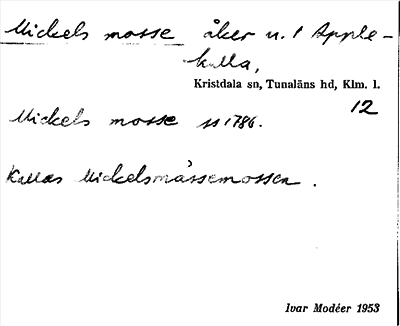 Mickels mosse åker u. 1 Apple-
kulla,
Kristdala sn, Tunaläns hd, Klm. l.
12
Mickels mosse ss 1786.
Kallas Mickelsmåssemossen.
Ivar Modéer 1953